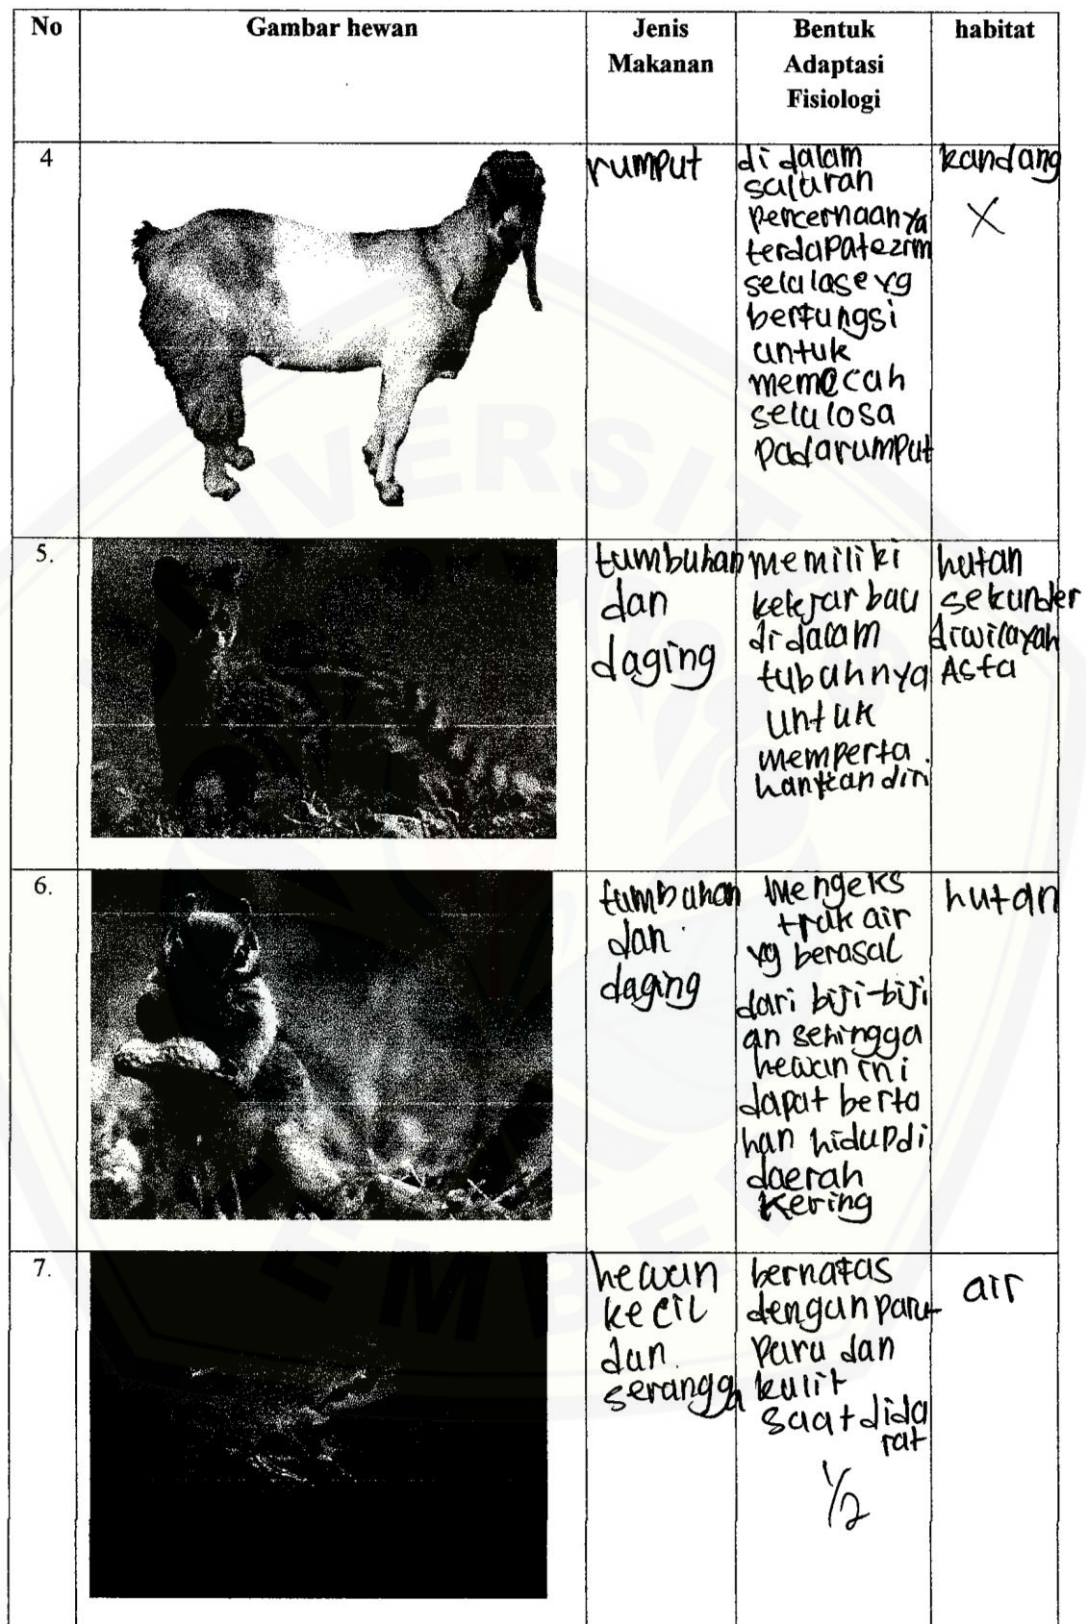 No Gambar hewan Jenis Makanan Bentuk Adaptasi Fisiologi habitat
4
rumput
di dalam
saluran
pencernaannya
terdapat ezim
selulase yg
berfungsi
untuk
memecah
selulosa
pada rumput
kandang
X
5.
tumbuhan
dan
daging
memiliki
kelejar bau
didalam
tubuhnya
untuk
memperta
hankan diri
hutan
sekunder
diwilayah
Asia
6.
tumbuhan
dan
daging
mengeks
trak air
yg berasal
dari biji-biji
an sehingga
hewan ini
dapat berta
han hidup di
daerah
kering
hutan
7.
hewan
kecil
dan
serangga
bernafas
dengan paru-
paru dan
kulit
saat dida
rat
1/2
air
UNIVERSITAS
JEMBER